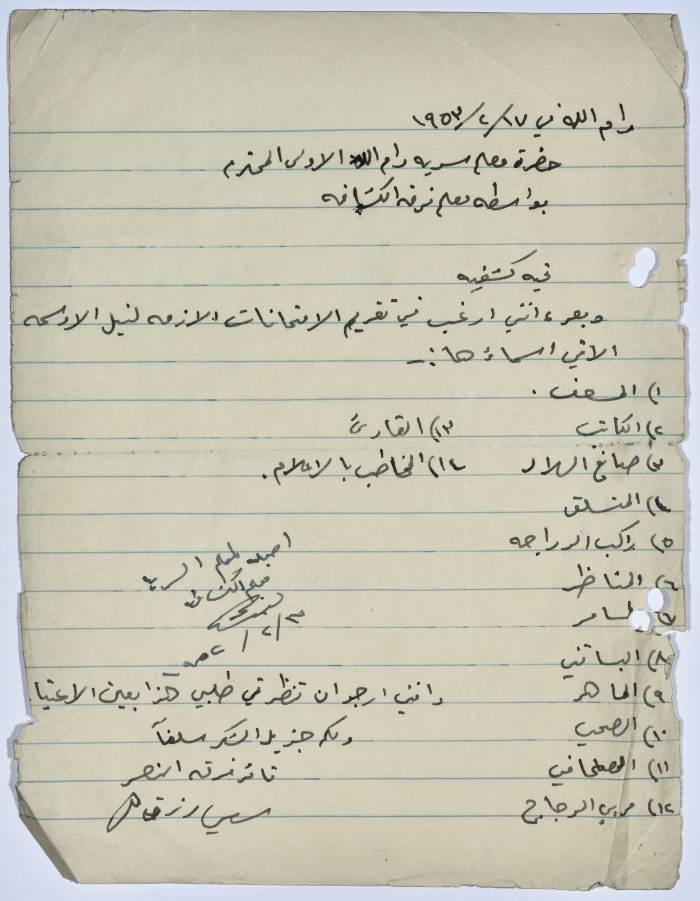 رام الله في ١٧/٢/١٩٥٣
حضرة معلم سريه رام الله الاولى المحترم
بواسطه معلم فرقه الكشافه
تحيه كشفيه
وبعد، انني ارغب في تقديم الامتحانات الازمه لنيل الاوسمه
الاتي اسماءها:ـ
١) المسعف .
٢) الكاتب
١٣) القارئ
٣) صباغ الجلاد
١٤) المخاطب بالاعلام .
٤) المتسلق
٥) راكب الدراجه
٦) المناظر
٧) المسامر
٨) البستاني
٩) الماهر
١٠) الصحي
١١) الصحافي
١٢) مربي الدجاج
احيله لمعلم السريه
معلم الكشافه
وانني ارجو ان تنظر في طلبي هذا بعين الاعتبا
ولكم جزيل الشكر سلفاً
قائد فرقه النصر